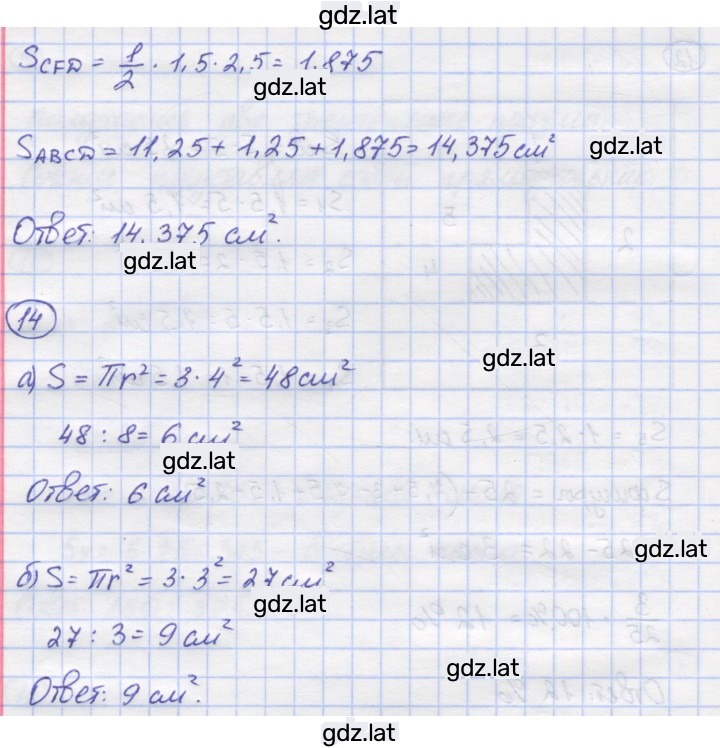 gdz.lat
S_CFD = 1/2 · 1,5 · 2,5 = 1.875
gdz.lat
S_ABCD = 11,25 + 1,25 + 1,875 = 14,375 см²
gdz.lat
Ответ: 14.375 см².
gdz.lat
14
а) S = πr² = 3 · 4² = 48 см²
gdz.lat
48 : 8 = 6 см²
gdz.lat
Ответ: 6 см²
gdz.lat
б) S = πr² = 3 · 3² = 27 см²
gdz.lat
27 : 3 = 9 см²
gdz.lat
Ответ: 9 см².
gdz.lat